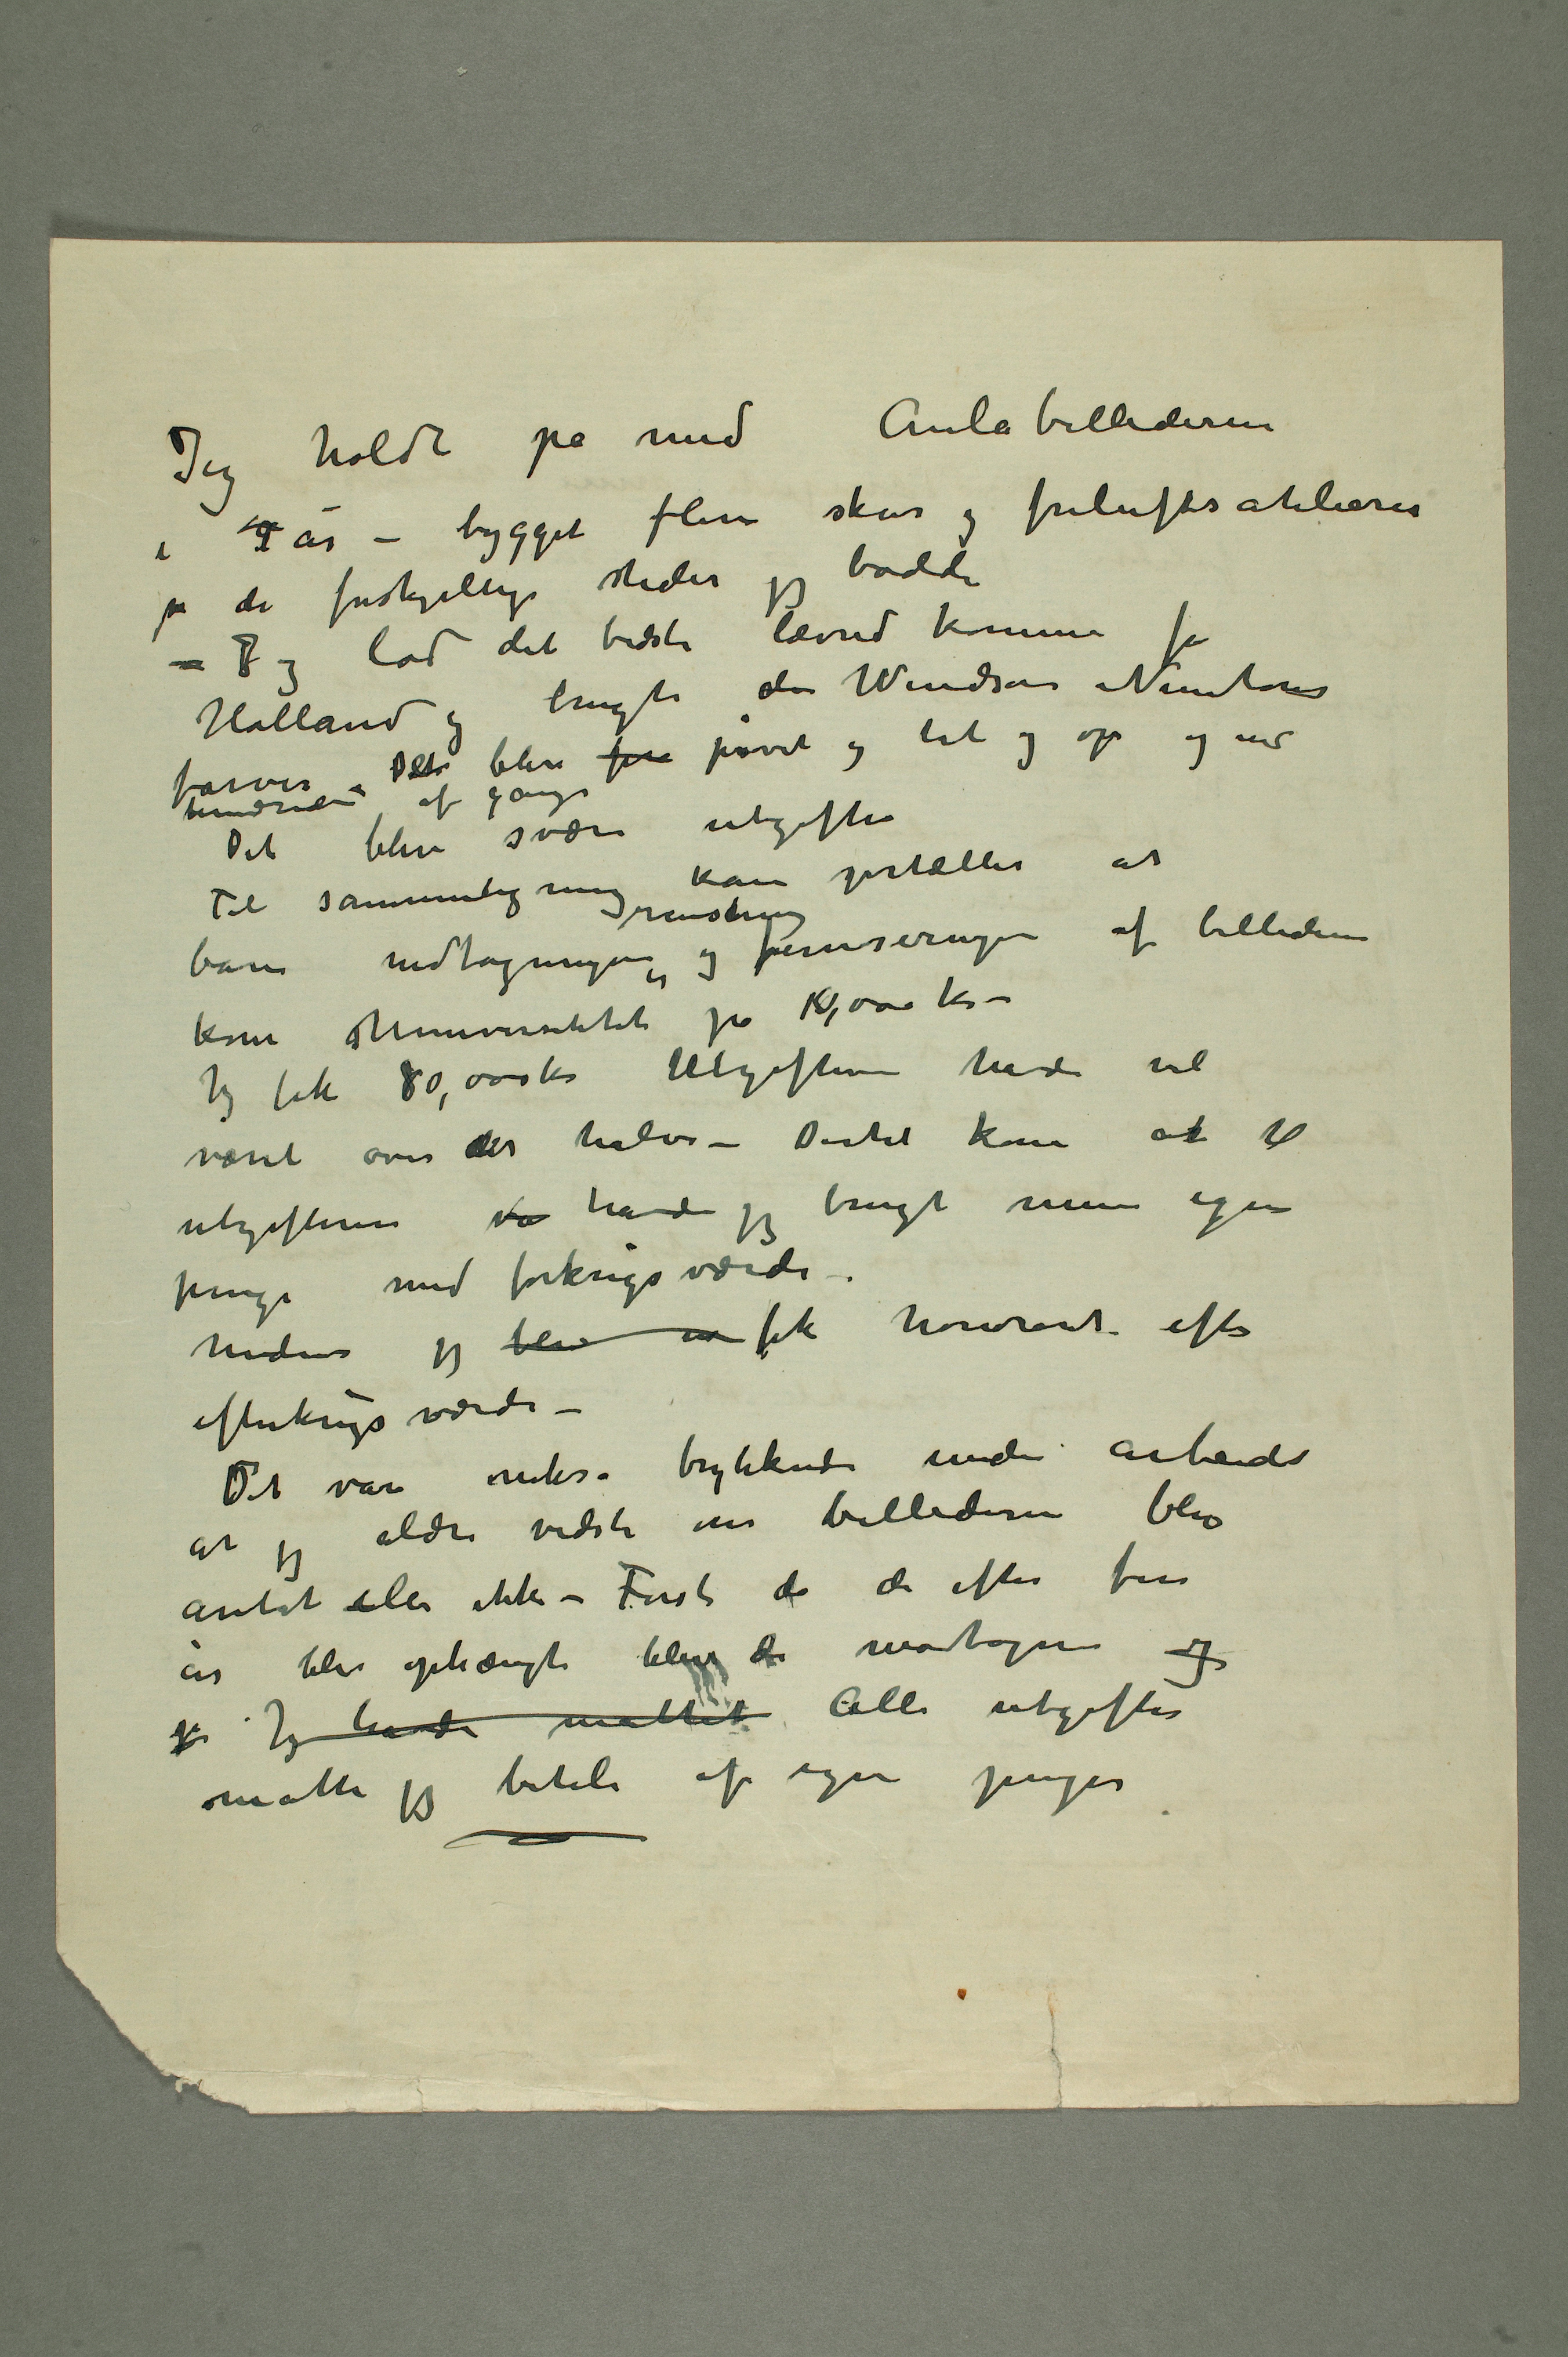 Jeg holdt på med Aulabillederne
i 9 år – bygget flere skur og friluftsatelierer
på de forskjellige steder jeg bodde
– Jeg lod det bedste lærred komme fra
Holland og brugte de Windsor Newtons
farver – Det blev prøvet og tat og op og ned
hundreder af gange
Det blev svære utgifter
Til sammenligning kan fortælles at
bare nedtagningen, rensning og ferniseringen af billederne
kom Universitetet på 10,000 kr –
Jeg fik 80,000 kr Utgifterne havde vel
været over det halve – Dertil kom at til
utgifterne havde jeg brugt mine egne
penge med førkrigsværdi –
medens jeg fik honorart efter
efterkrigsværdi –
Det var også trykkende under arbeidet
at jeg aldri vidste om billederne blev
antat eller ikke – Først da de efter fem
år blev ophængt blev de modtagne og
Jeg havde måttet Alle utgifter
måtte jeg betale af egne penger